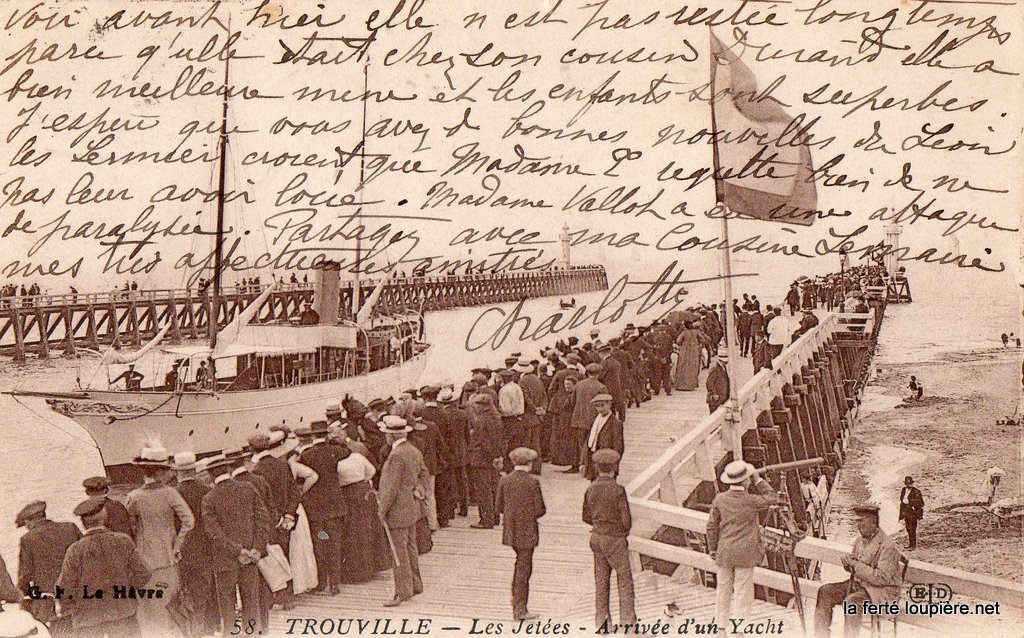 voir avant hier elle n'est pas restée longtemps
parce qu'elle était chez son cousin Durand elle a
bien meilleure mine et les enfants sont superbes.
J'espère que vous avez de bonnes nouvelles de Léon
les Lermier croient que Madame E regrette bien de ne
pas leur avoir loué. Madame Vallot a eu une attaque
de paralysie. Partagez avec ma Cousine Lemaire
mes très affectueuses amitiés
Charlotte
G. F. Le Hâvre
58. TROUVILLE - Les Jetées - Arrivée d'un Yacht
ELD
la ferté loupière.net